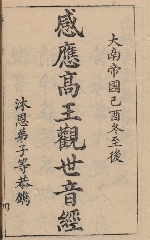 大南帝國己酉冬至後
感應高王觀世音經
沐恩弟子等恭鐫